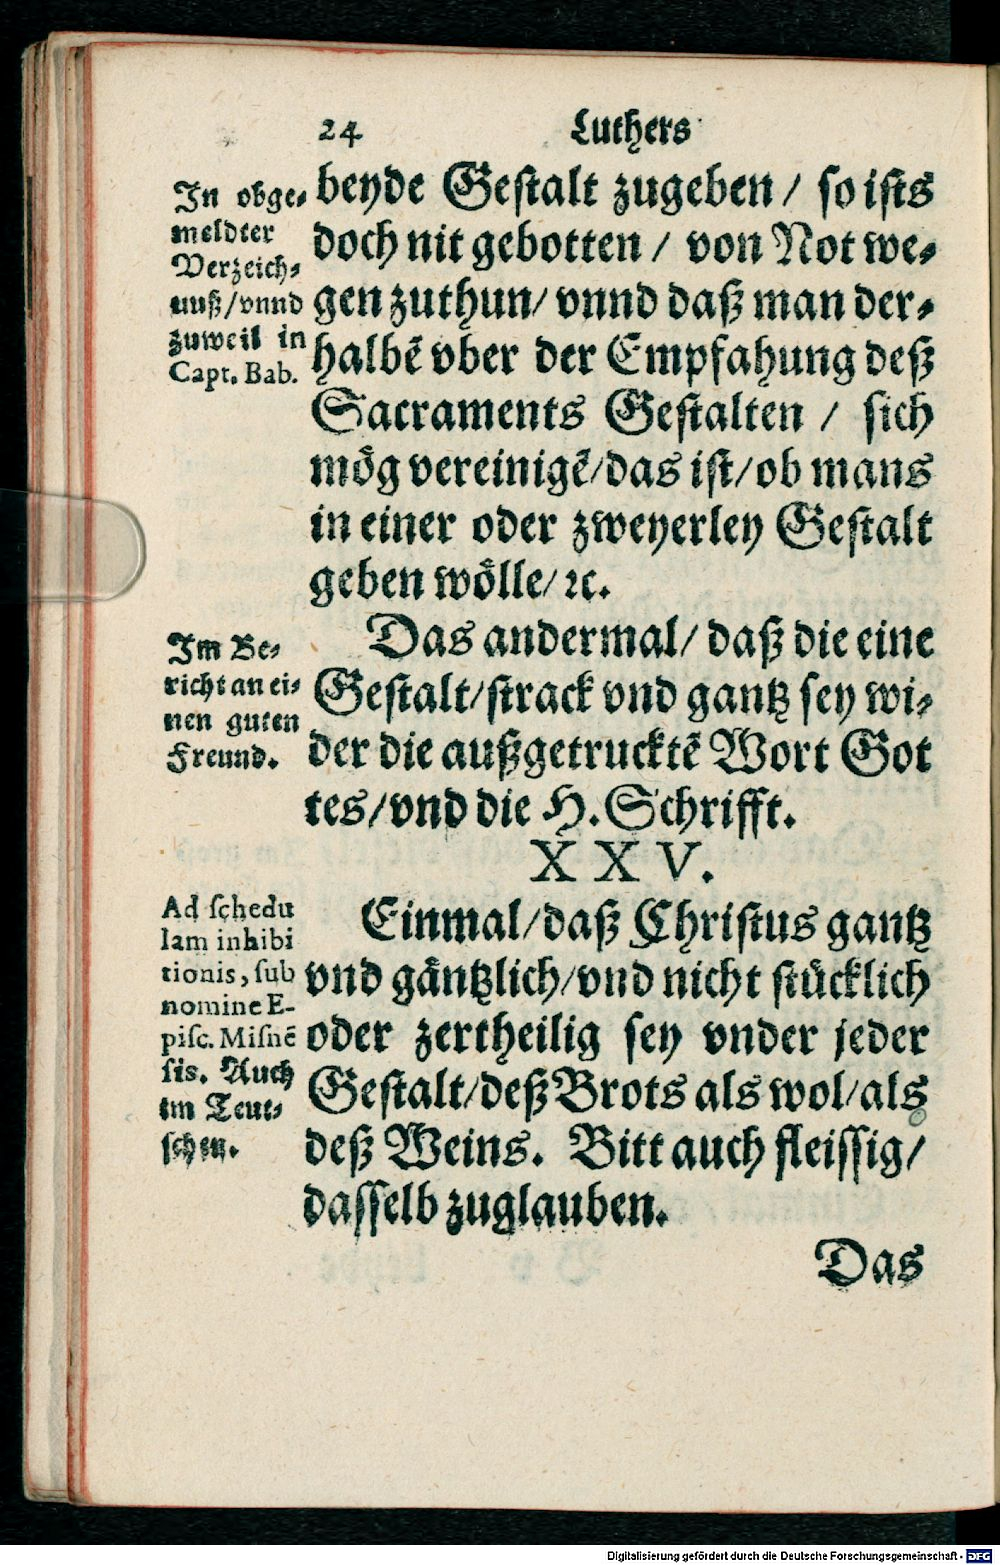 24 Luthers
In obge-
meldter
Verzeich-
nuß/vnnd
zuweil in
Capt. Bab.
beyde Gestalt zugeben / so ists
doch nit gebotten / von Not we-
gen zuthun/ vnnd daß man der-
halbẽ vber der Empfahung deß
Sacraments Gestalten / sich
mög vereinigẽ/das ist/ ob mans
in einer oder zweyerley Gestalt
geben wölle/ ꝛc.
Im Be-
richt an ei-
nen guten
Freund.
Das andermal/ daß die eine
Gestalt/strack vnd gantz sey wi-
der die außgetrucktẽ Wort Got
tes/vnd die H. Schrifft.
XXV.
Ad schedu
lam inhibi
tionis, sub
nomine E-
pisc. Misnẽ
sis. Auch
im Teut-
schen.
Einmal/daß Christus gantz
vnd gäntzlich/vnd nicht stücklich
oder zertheilig sey vnder jeder
Gestalt/deß Brots als wol/als
deß Weins. Bitt auch fleissig/
dasselb zuglauben.
Das
Digitalisierung gefördert durch die Deutsche Forschungsgemeinschaft - DFG